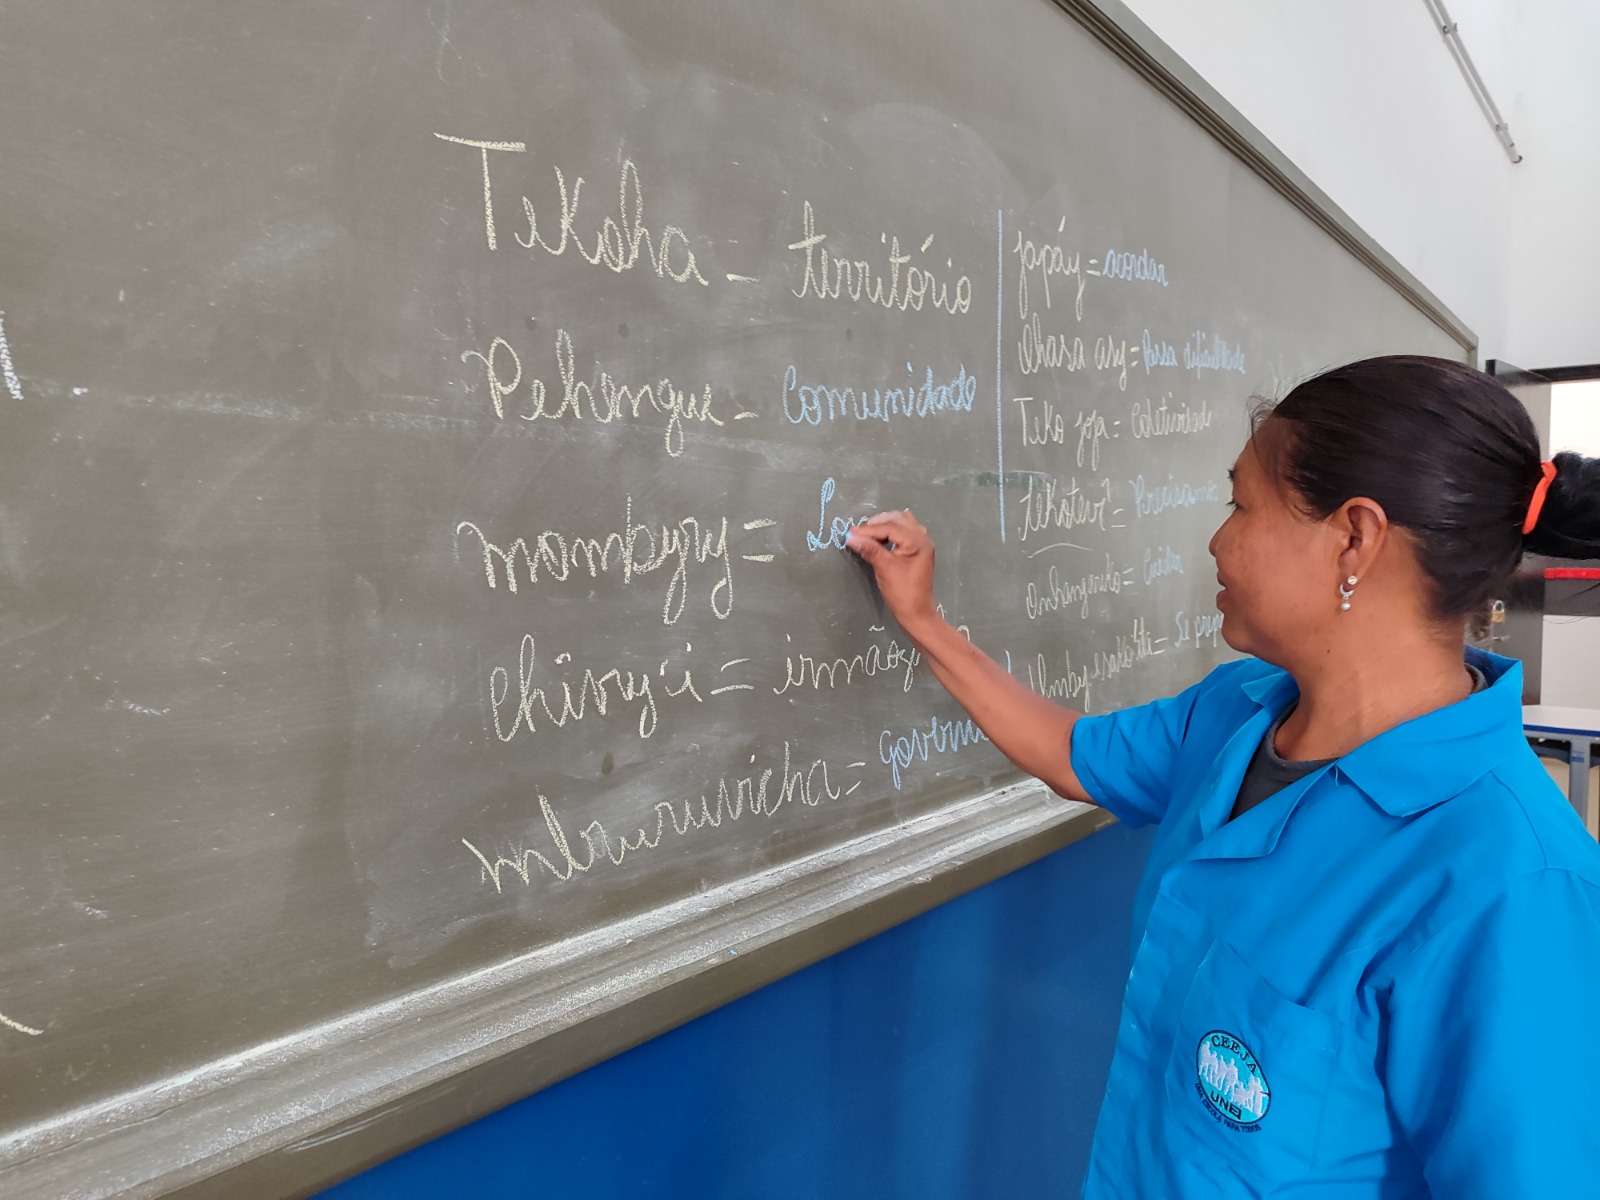 Tekoha - território
Pehengue - Comunidade
mombyry = Lon
Chivy'i = irmãoz
mburuvicha = govern
japáy = acordar
Ohasa asy = Passa dificuldade
Teko joja = Coletividade
tekotevĩ = Precisamos
Onhangereko = Cuidar
= Se prep
CEEJA
UNEI
UMA ESCOLA PARA TODOS